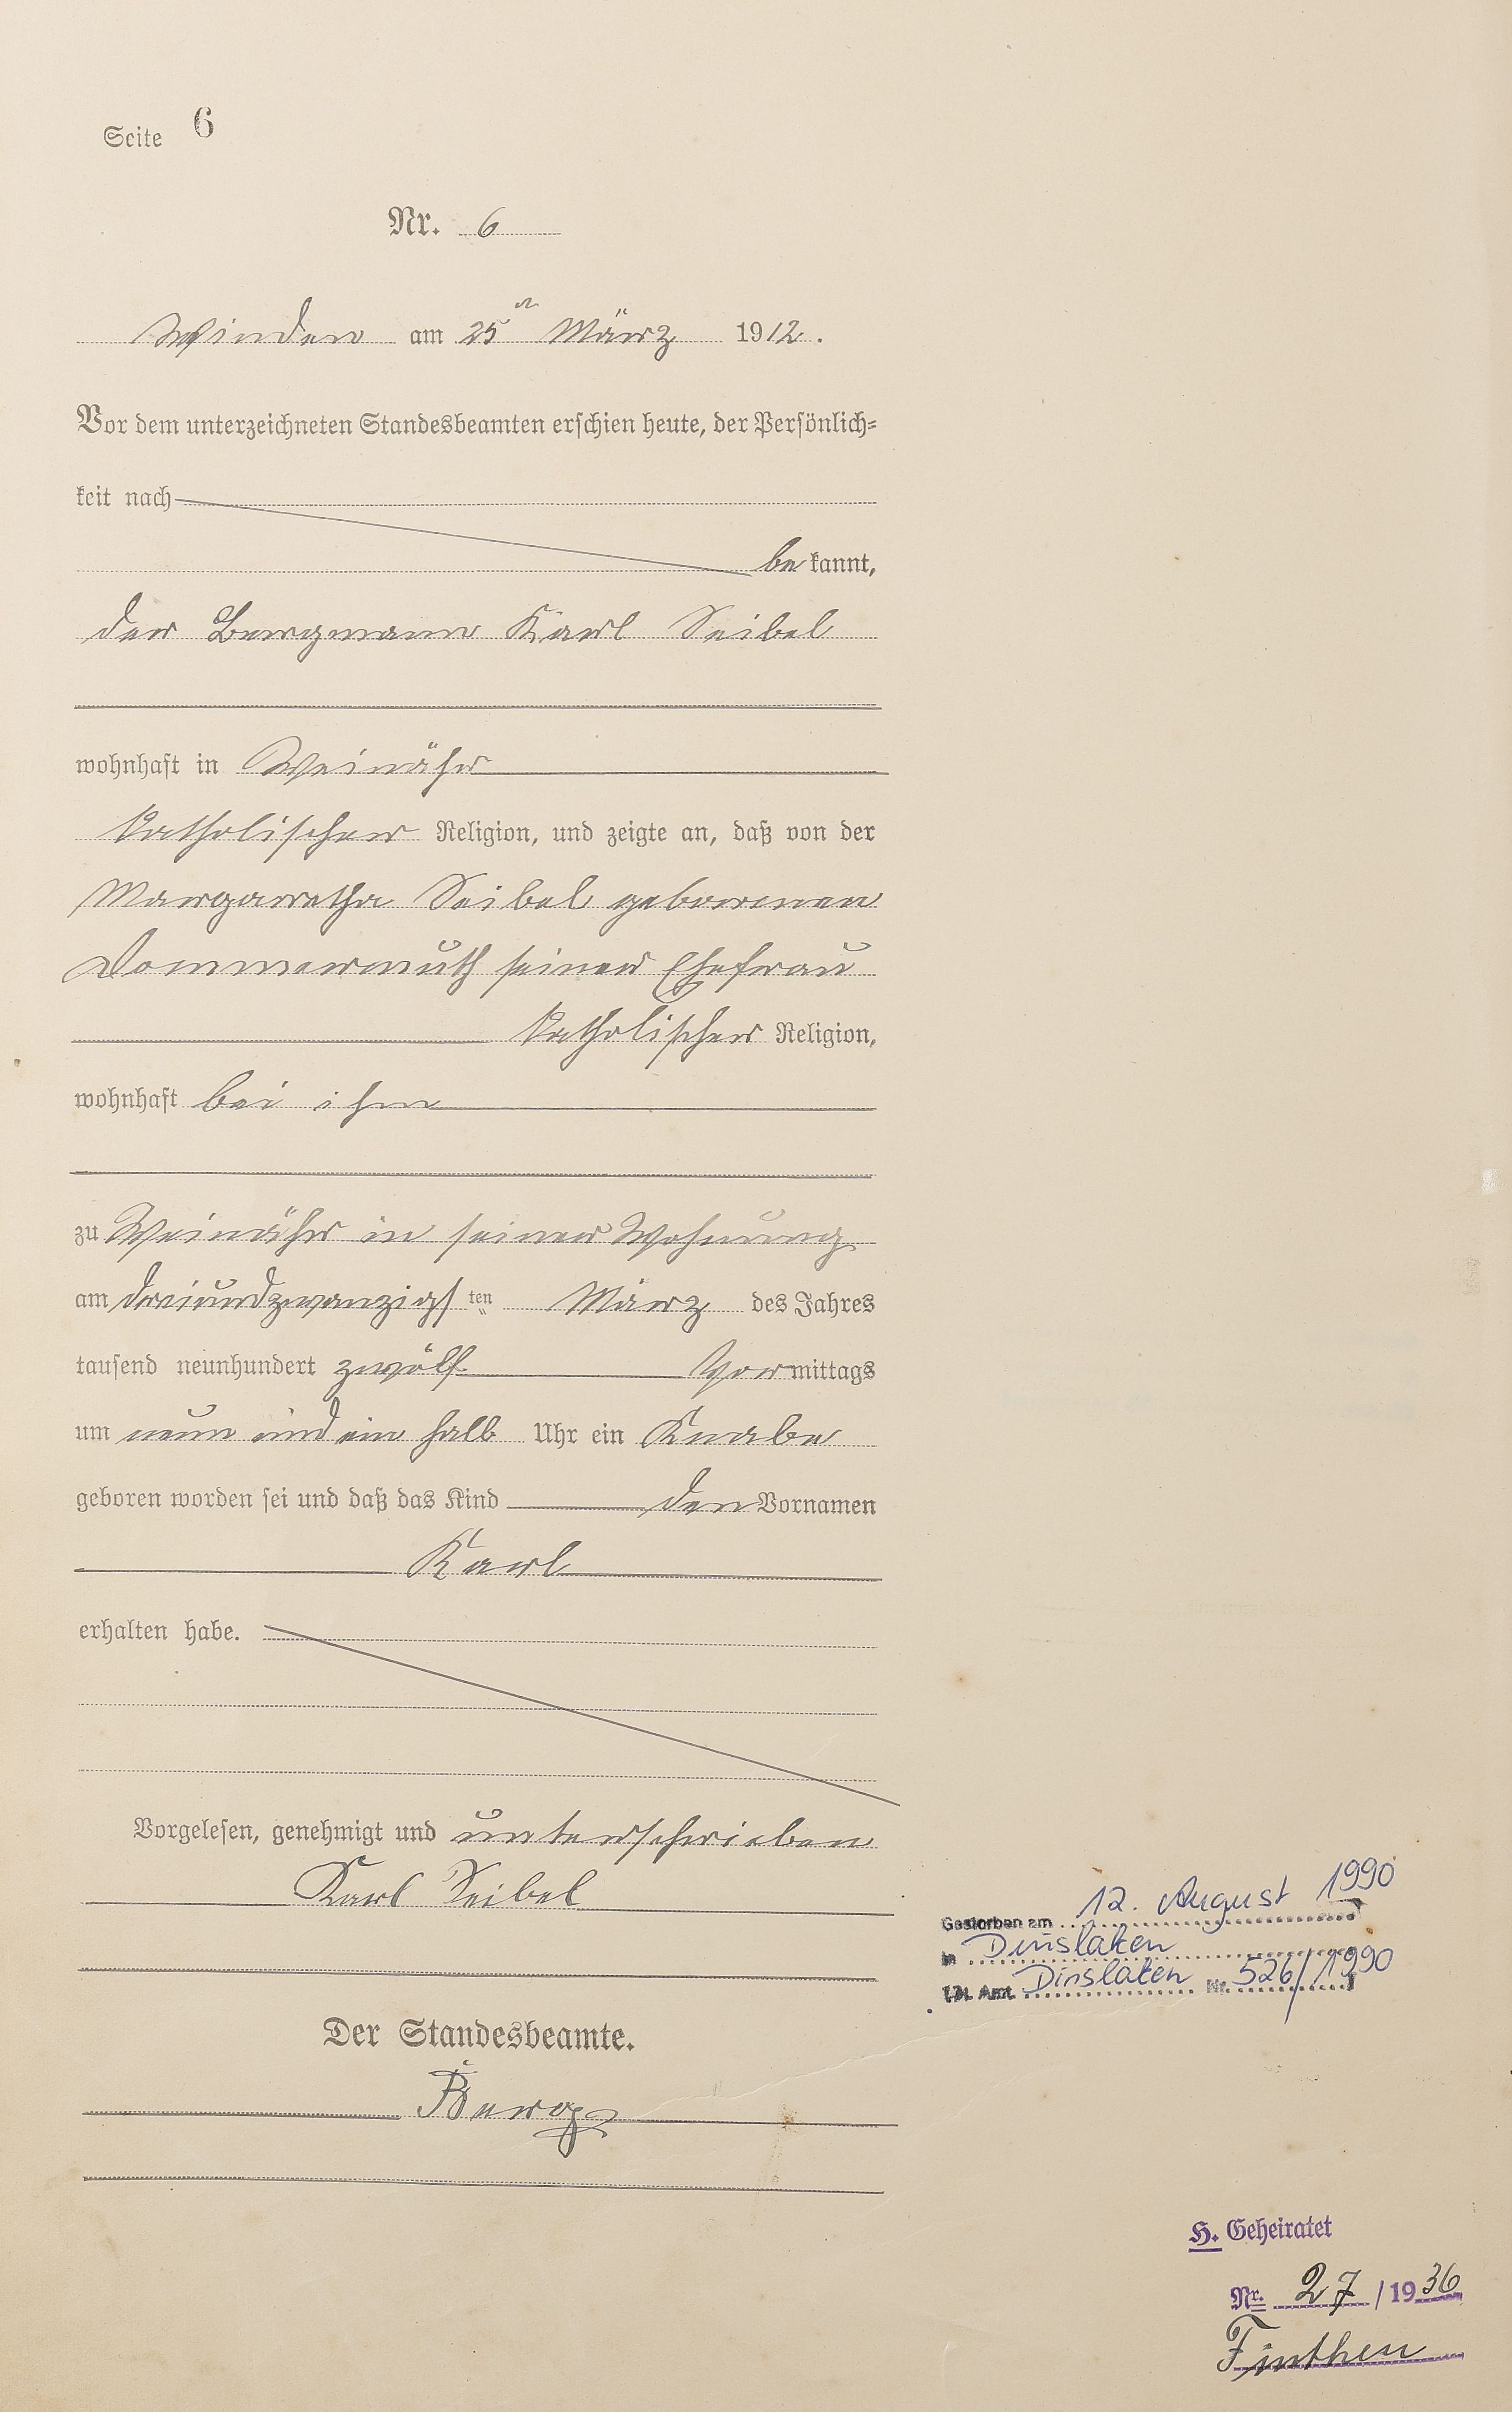 Seite 6
Nr. 6
Winden am 25ten März 1912.
Vor dem unterzeichneten Standesbeamten erschien heute, der Persönlich-
keit nach
bekannt,
der Bergmann Karl Seibel
wohnhaft in Weinähr
katholischer Religion, und zeigte an, daß von der
Margaretha Seibel geborenen
Dommermuth seiner Ehefrau
katholischer Religion,
wohnhaft bei ihm
zu Weinähr in seiner Wohnung
am dreiundzwanzigsten März des Jahres
tausend neunhundert zwölf Vormittags
um neun und ein halb Uhr ein Knabe
geboren worden sei und daß das Kind den Vornamen
Karl
erhalten habe.
Vorgelesen, genehmigt und unterschrieben
Karl Seibel
Der Standesbeamte.
Gestorben am 12. August 1990
in Dinslaken
St. Amt Dinslaken Nr. 526/1990
H. Geheiratet
Nr. 27/1936
Finthen